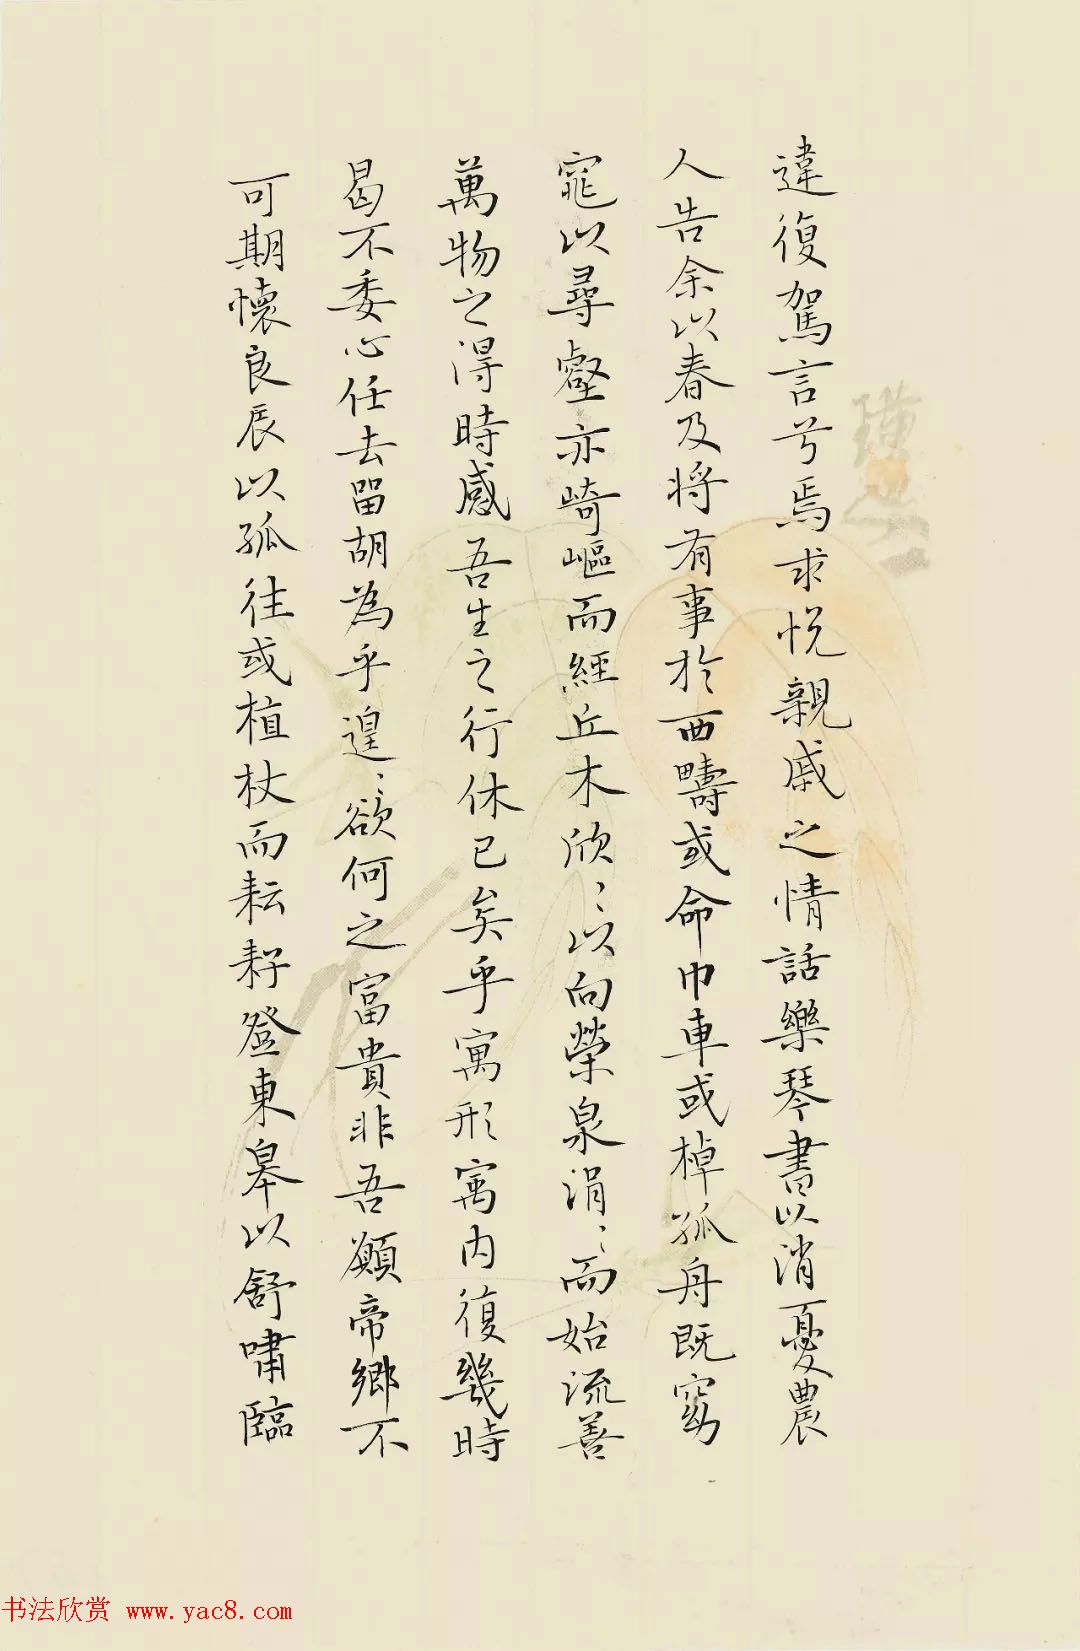 違復駕言兮焉求悅親戚之情話樂琴書以消憂農
人告余以春及將有事於西疇或命巾車或棹孤舟既窈
窕以尋壑亦崎嶇而經丘木欣〻以向榮泉涓〻而始流善
萬物之得時感吾生之行休已矣乎寓形寓内復幾時
曷不委心任去留胡為乎遑〻欲何之富貴非吾願帝鄉不
可期懷良辰以孤往或植杖而耘耔登東皋以舒嘯臨
书法欣赏 www.yac8.com